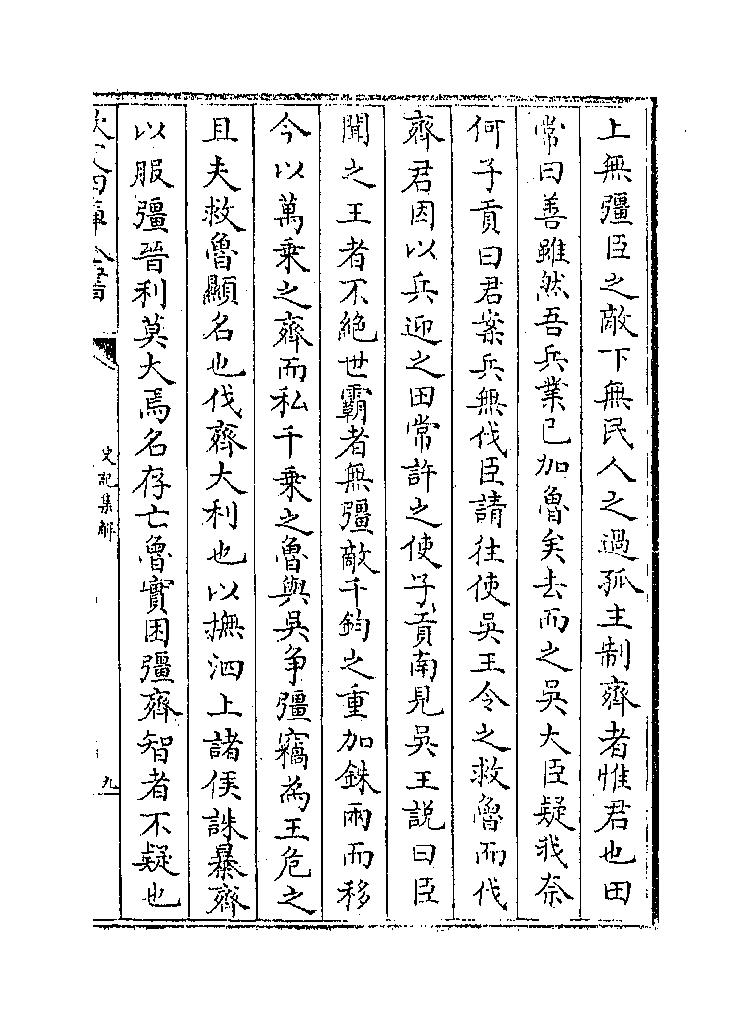 上無彊臣之敵下無民人之過孤主制齊者惟君也田
常曰善雖然吾兵業已加魯矣去而之吳大臣疑我奈
何子貢曰君案兵無伐臣請往使吳王令之救魯而伐
齊君因以兵迎之田常許之使子貢南見吳王說曰臣
聞之王者不絶世霸者無彊敵千鈞之重加銖兩而移
今以萬乗之齊而私千乗之魯與吳争彊竊為王危之
且夫救魯顯名也伐齊大利也以撫泗上諸侯誅暴齊
以服彊晉利莫大焉名存亡魯實困彊齊智者不疑也
欽定四庫全書
史記集解
九